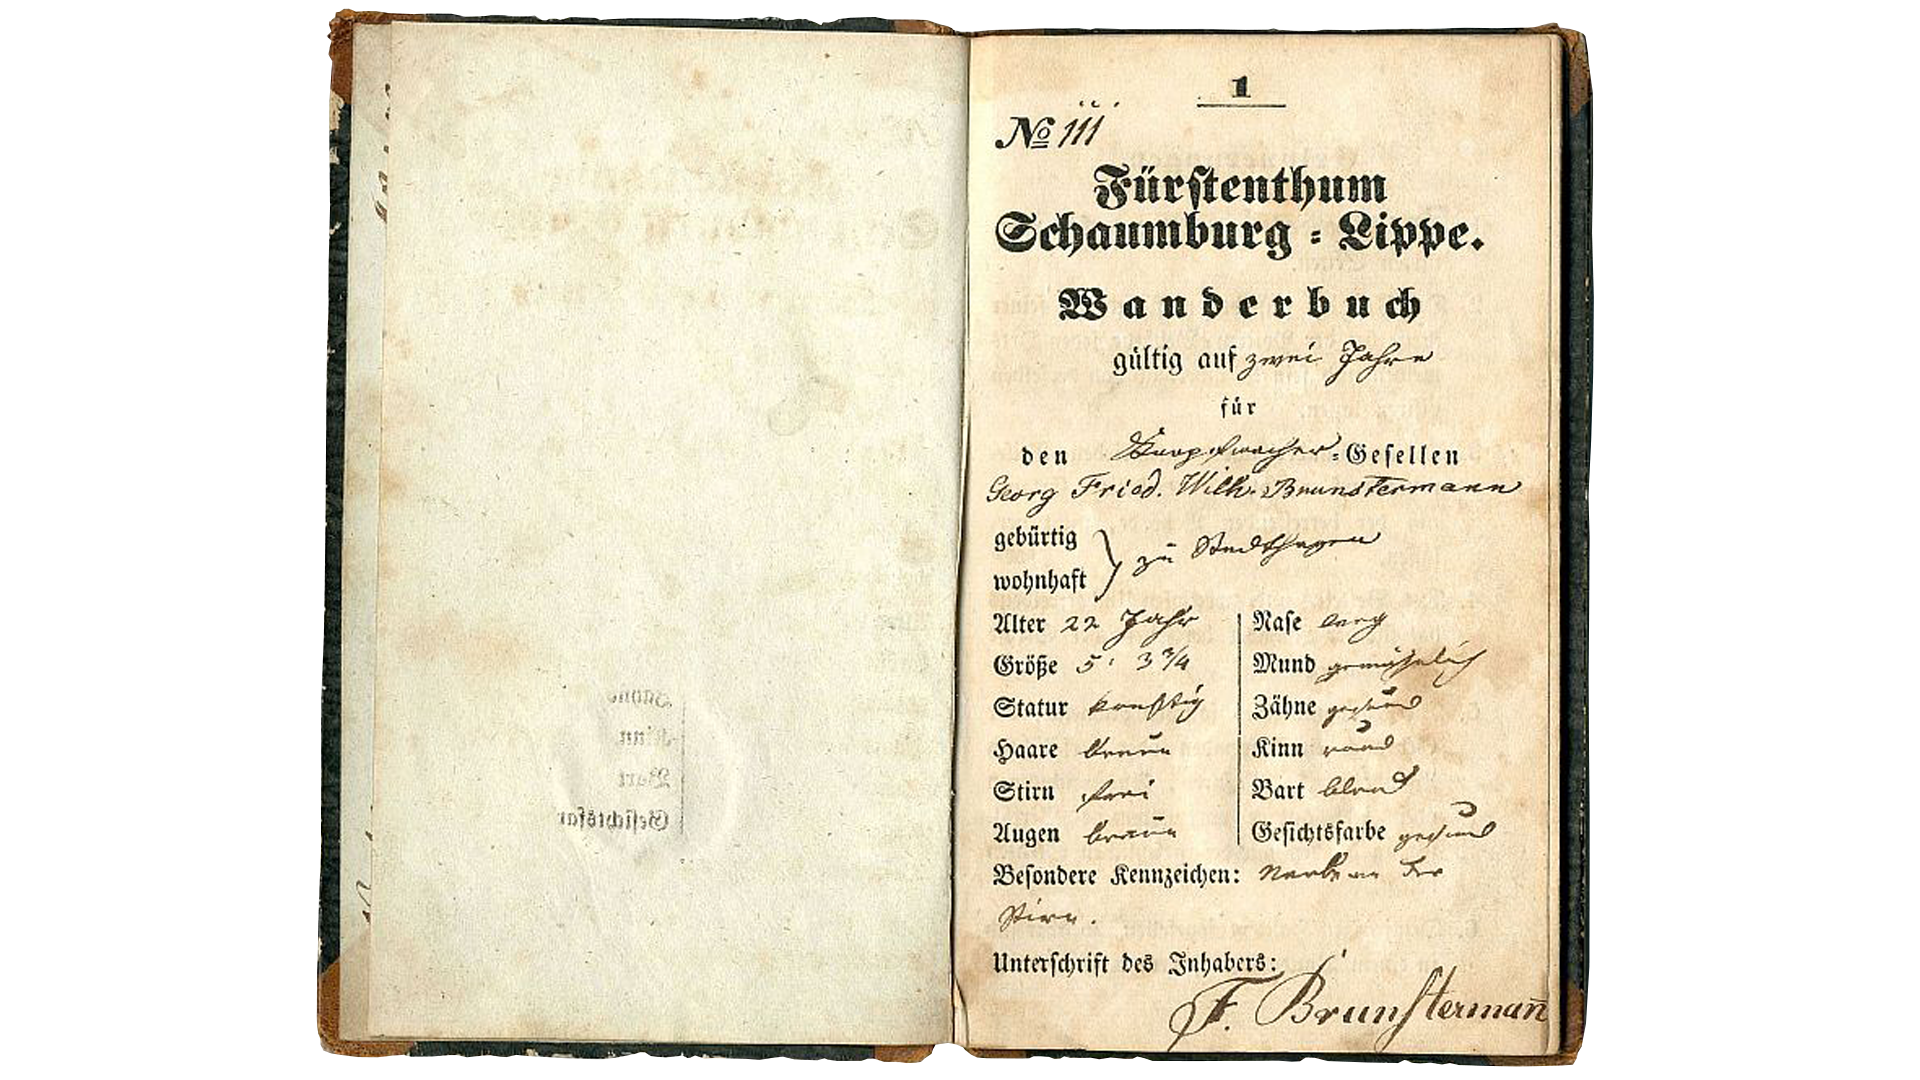 1
No 111
Fürstenthum
Schaumburg-Lippe.
Wanderbuch
gültig auf zwei Jahre
für
den Knopfmacher-Gesellen
Georg Fried. Wilh. Brunstermann
gebürtig
wohnhaft
zu Stadthagen
Alter 22 Jahr
Größe 5' 3 3/4
Statur
Haare braun
Stirn frei
Augen braun
Nase lang
Mund gewöhnlich
Zähne gesund
Kinn rund
Bart blond
Gesichtsfarbe gesund
Besondere Kennzeichen: Narbe an der
Stirn.
Unterschrift des Inhabers:
F. Brunstermañ